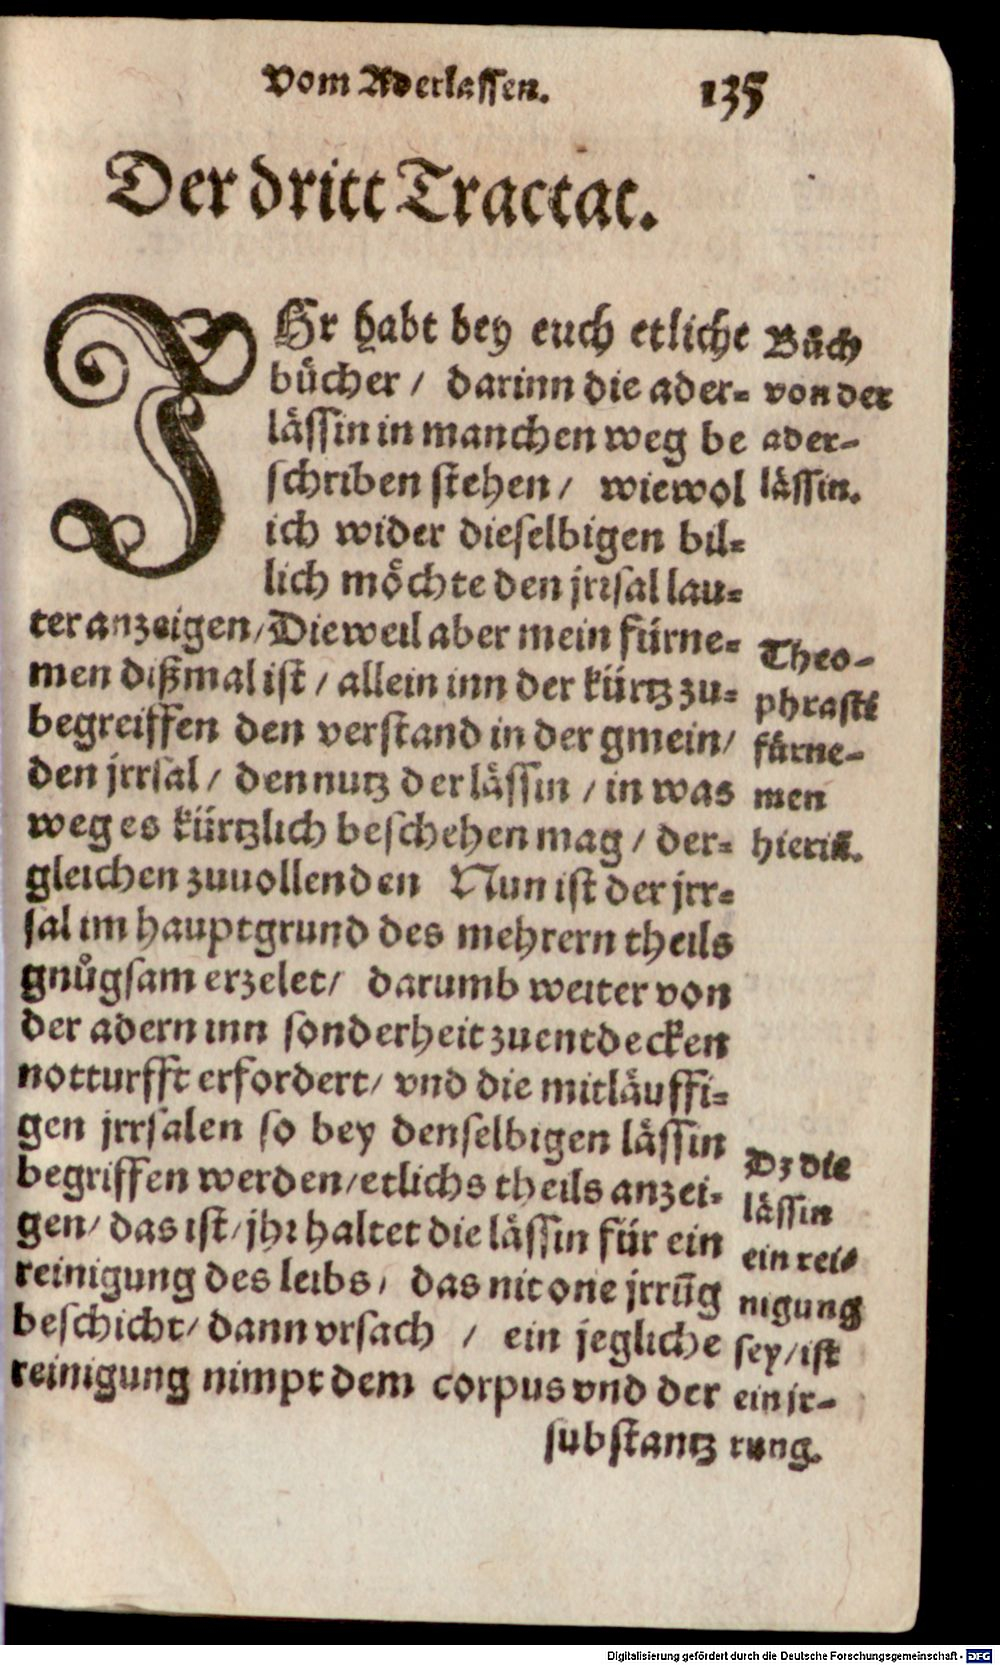 Vom Aderlassen. 135
Der dritt Tractat.
IHr habt bey euch etliche
bücher / darinn die ader-
lässin in manchen weg be
schriben stehen / wiewol
ich wider dieselbigen bil-
lich möchte den jrrsal lau-
ter anzeigen / Dieweil aber mein fürne-
men dißmal ist / allein inn der kürtz zu-
begreiffen den verstand in der gmein /
den jrrsal / den nutz der lässin / in was
weg es kürtzlich beschehen mag / der-
gleichen zuuollenden Nun ist der jrr-
sal im hauptgrund des mehrern theils
gnůgsam erzelet / darumb weiter von
der adern inn sonderheit zuentdecken
notturfft erfordert / vnd die mitläuffi-
gen jrrsalen so bey denselbigen lässin
begriffen werden / etlichs theils anzei-
gen / das ist / jhr haltet die lässin für ein
reinigung des leibs / das nit one jrrūg
beschicht / dann vrsach / ein jegliche
reinigung nimpt dem corpus vnd der
substantz
Bůch
von der
ader-
lässin.
Theo-
phrasti
fürne-
men
hierin̄.
Dz die
lässin
ein rei-
nigung
sey / ist
ein jr-
rung.
Digitalisierung gefördert durch die Deutsche Forschungsgemeinschaft - DFG